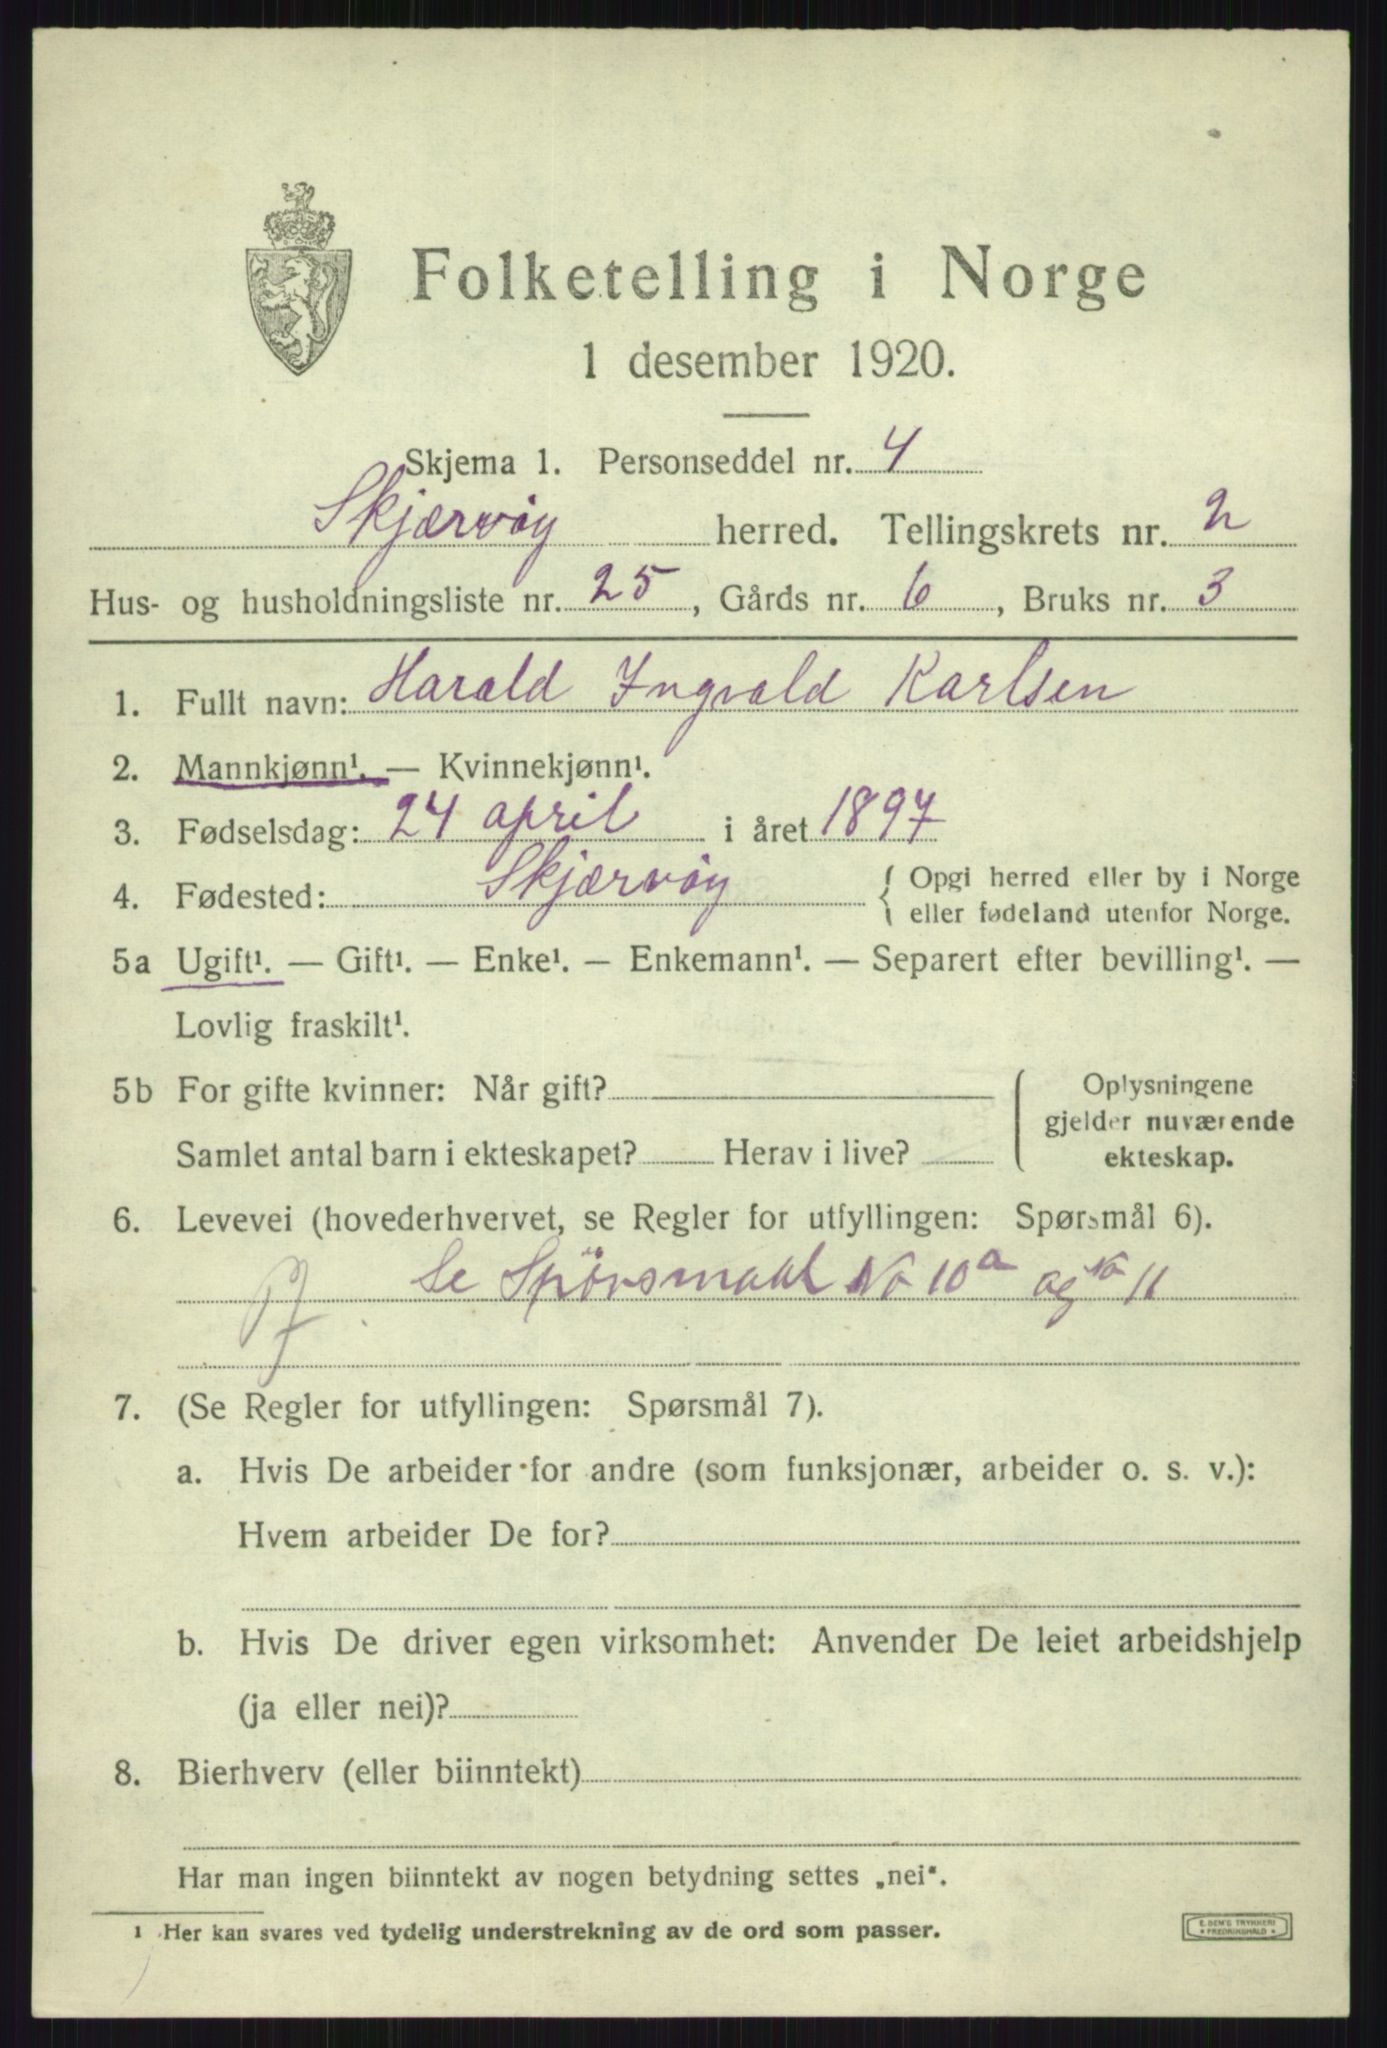 Folketelling i Norge
1 desember 1920.
Skjema 1. Personseddel nr. 4
Skjærvöy herred. Tellingskrets nr. 2
Hus- og husholdningsliste nr. 25, Gårds nr. 6, Bruks nr. 3
1. Fullt navn: Harald Ingvald Karlsen
2. Mannkjønn¹. — Kvinnekjønn¹.
3. Fødselsdag: 24 april i året 1897
4. Fødested: Skjærvöy { Opgi herred eller by i Norge
eller fødeland utenfor Norge.
5a Ugift¹. — Gift¹. — Enke¹. — Enkemann¹. — Separert efter bevilling¹. —
Lovlig fraskilt¹.
5b For gifte kvinner: Når gift?
Samlet antal barn i ekteskapet? Herav i live?
Oplysningene
gjelder nuværende
ekteskap.
6. Levevei (hovederhvervet, se Regler for utfyllingen: Spørsmål 6).
Se Spörsmaal No 10a og No 11
7. (Se Regler for utfyllingen: Spørsmål 7).
a. Hvis De arbeider for andre (som funksjonær, arbeider o. s. v.):
Hvem arbeider De for?
b. Hvis De driver egen virksomhet: Anvender De leiet arbeidshjelp
(ja eller nei)?
8. Bierhverv (eller biinntekt)
Har man ingen biinntekt av nogen betydning settes „nei“.
¹ Her kan svares ved tydelig understrekning av de ord som passer.
E. SEM'S TRYKKERI
FREDRIKSHALD